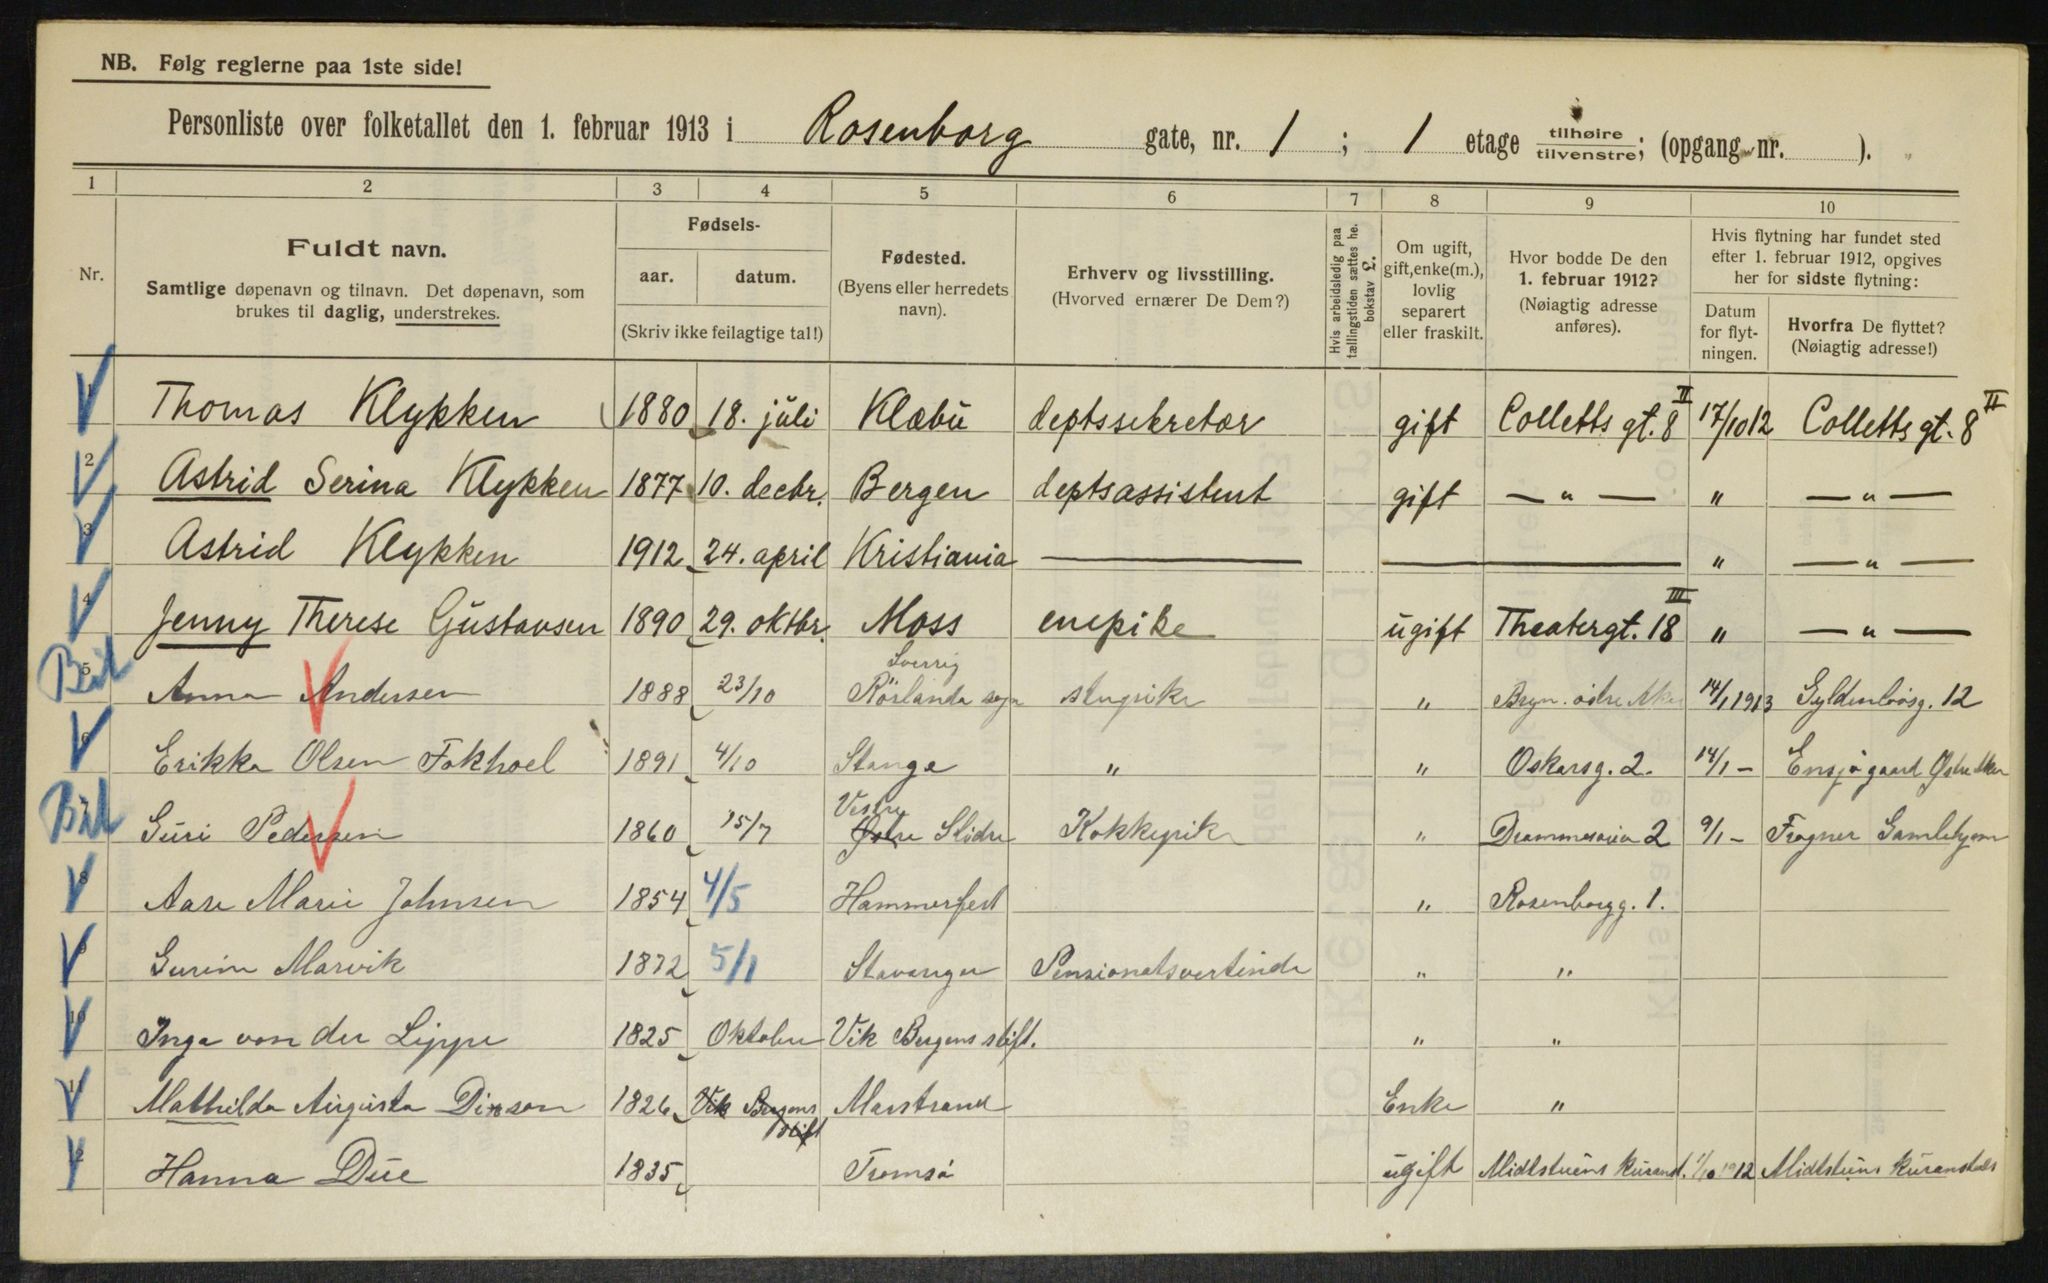 NB. Følg reglerne paa 1ste side!
Personliste over folketallet den 1. februar 1913 i Rosenborg gate, nr. 1 ; 1 etage tilhøire/tilvenstre; (opgang nr. ).
1 2 3 4 5 6 7 8 9 10
Nr.
Fuldt navn.
Samtlige døpenavn og tilnavn. Det døpenavn, som
brukes til daglig, understrekes.
Fødsels-
aar. datum.
(Skriv ikke feilagtige tal!)
Fødested.
(Byens eller herredets
navn).
Erhverv og livsstilling.
(Hvorved ernærer De Dem?)
Hvis arbeidsledig paa
tællingstiden sættes he.
bokstav £.
Om ugift,
gift, enke(m.),
lovlig
separert
eller fraskilt.
Hvor bodde De den
1. februar 1912?
(Nøiagtig adresse
anføres).
Hvis flytning har fundet sted
efter 1. februar 1912, opgives
her for sidste flytning:
Datum
for flyt-
ningen.
Hvorfra De flyttet?
(Nøiagtig adresse!)
1 Thomas Klykken 1880 18. juli Klæbu deptssekretær gift Colletts gt. 8 II 17/10 12 Colletts gt. 8 II
2 Astrid Serina Klykken 1877 10. decbr. Bergen deptsassistent gift — " — " — " —
3 Astrid Klykken 1912 24. april Kristiania — — " — " —
4 Jenny Therese Gustavsen 1890 29. oktbr. Moss enepike ugift Theatergt. 18 III " — " —
5 Anna Andersen 1888 23/10 Sverrig Rörlanda sogn stuepike " Bryn. östre Aker 14/1 1913 Gyldenløvsg. 12
6 Erikka Olsen Fokhoel 1891 4/10 Stange " " Oskarsg. 2. 14/1 – Ensjø gaard Østre Aker
7 Guri Pedersen 1860 15/7 Vestre Østre Slidre Kokkepike " Drammensveien 2 9/1 – Frogner Gamlehjem
8 Aase Marie Johnsen 1854 4/5 Hammerfest " Rosenborgg. 1.
9 Gurine Marvik 1872 5/1 Stavanger Pensionatsvertinde " "
10 Inga von der Lippe 1825 Oktober Vik Bergens stift. " "
11 Mathilda Augusta Dirson 1826 Vik Bergens stift Marstrand Enke "
12 Hanna Due 1835 Tromsø ugift Midtstuens kuranst. 1/10 1912 Midtstuens kuranstalt